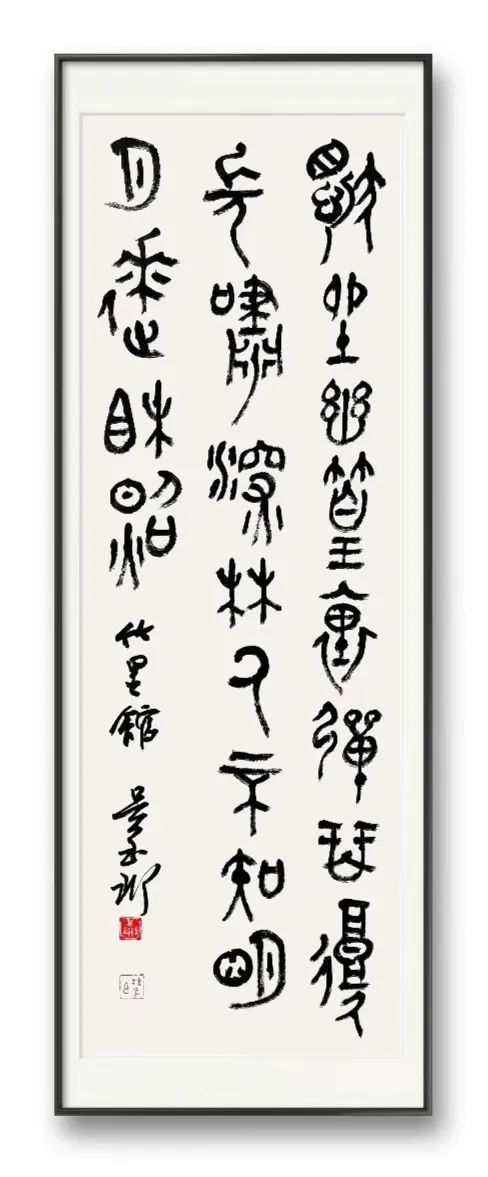 獨坐幽篁裏彈琴復
長嘯深林人不知明
月來相照 竹里館